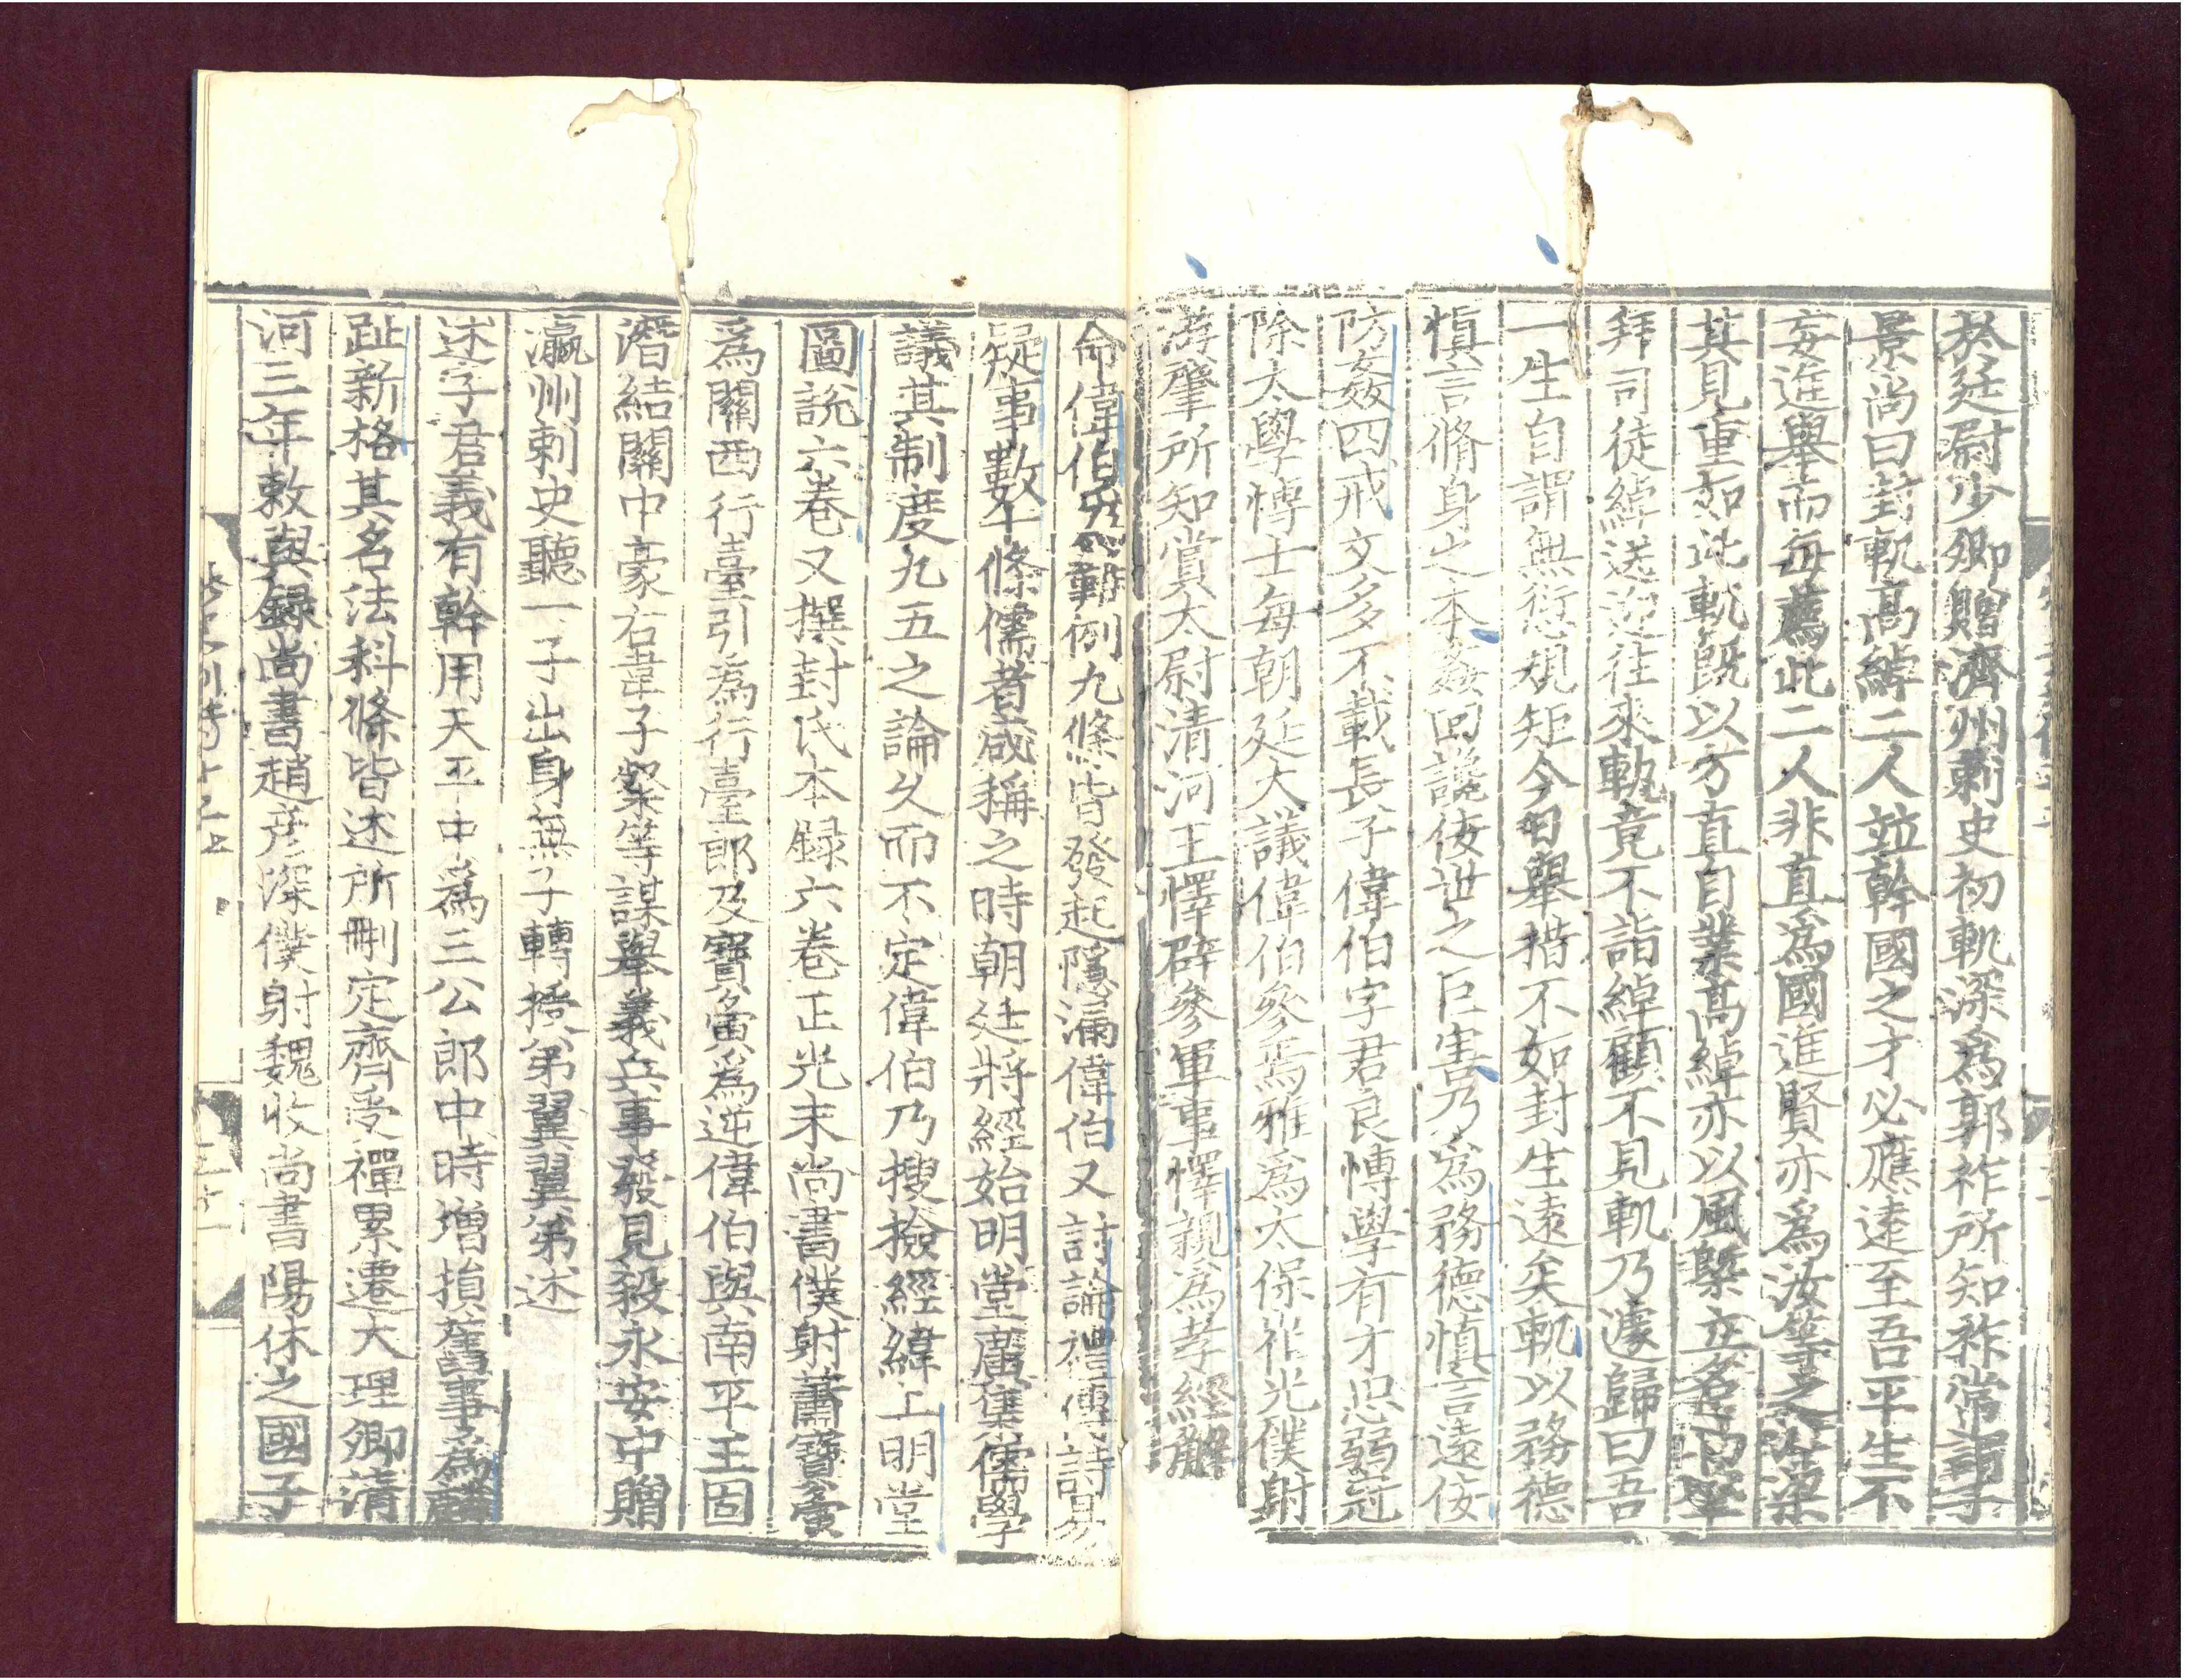 於廷尉少卿贈濟州刺史初軌深爲郭祚所知祚常謂子
景尚曰封軌高綽二人並幹國之才必應遠至吾平生不
妄進舉而每薦此二人非直爲國進賢亦爲汝等之津梁
其見重如此軌既以方直自業高綽亦以風槩立名高肇
拜司徒綽送迎往來軌竟不詣綽顧不見軌乃遽歸曰吾
一生自謂無愆規矩今日舉措不如封生遠矣軌以務德
愼言脩身之本姦回讒佞世之巨害乃爲務德慎言遠佞
防姦四戒文多不載長子偉伯字君良博學有才思弱冠
除太學博士每朝廷大議偉伯參焉雅爲太保崔光僕射
游肇所知賞太尉清河王懌辟參軍事懌親爲孝經解
命偉伯爲難例九條皆發起隱漏偉伯又討論禮傳詩易
疑事數十條儒者咸稱之時朝廷將經始明堂廣集儒學
議其制度九五之論久而不定偉伯乃搜撿經緯上明堂
圖說六卷又撰封氏本錄六卷正光末尚書僕射蕭寶夤
爲關西行臺引爲行臺郎及寶夤爲逆偉伯與南平王固
潛結關中豪右韋子粲等謀舉義兵事發見殺永安中贈
瀛州刺史聽一子出身無子轉授弟翼翼弟述
述字君義有幹用天平中爲三公郎中時增損舊事爲麟
趾新格其名法科條皆述所刪定齊受禪累遷大理卿清
河三年敕與錄尚書趙彥深僕射魏收尚書陽休之國子